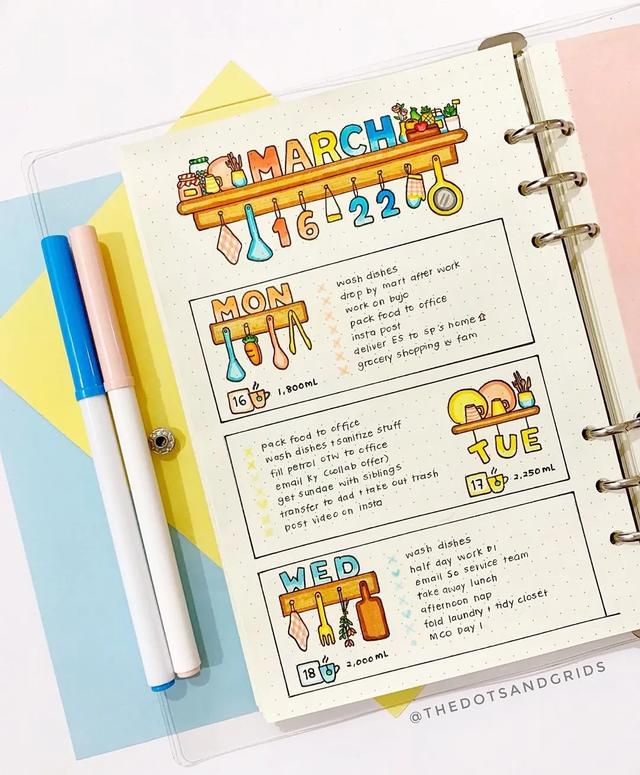 MARCH
16 - 22
MON
wash dishes
drop by mart after work
work on bujo
pack food to office
insta post
deliver ES to sp's home
grocery shopping w fam
16 1,800mL
pack food to office
wash dishes + sanitize stuff
fill petrol OTW to office
email Ky (collab offer)
get sundae with siblings
transfer to dad + take out trash
post video on insta
TUE
17 2,250mL
WED
wash dishes
half day work D1
email So service team
take away lunch
afternoon nap
fold laundry + tidy closet
MCO Day 1
18 2,000mL
@THEDOTSANDGRIDS